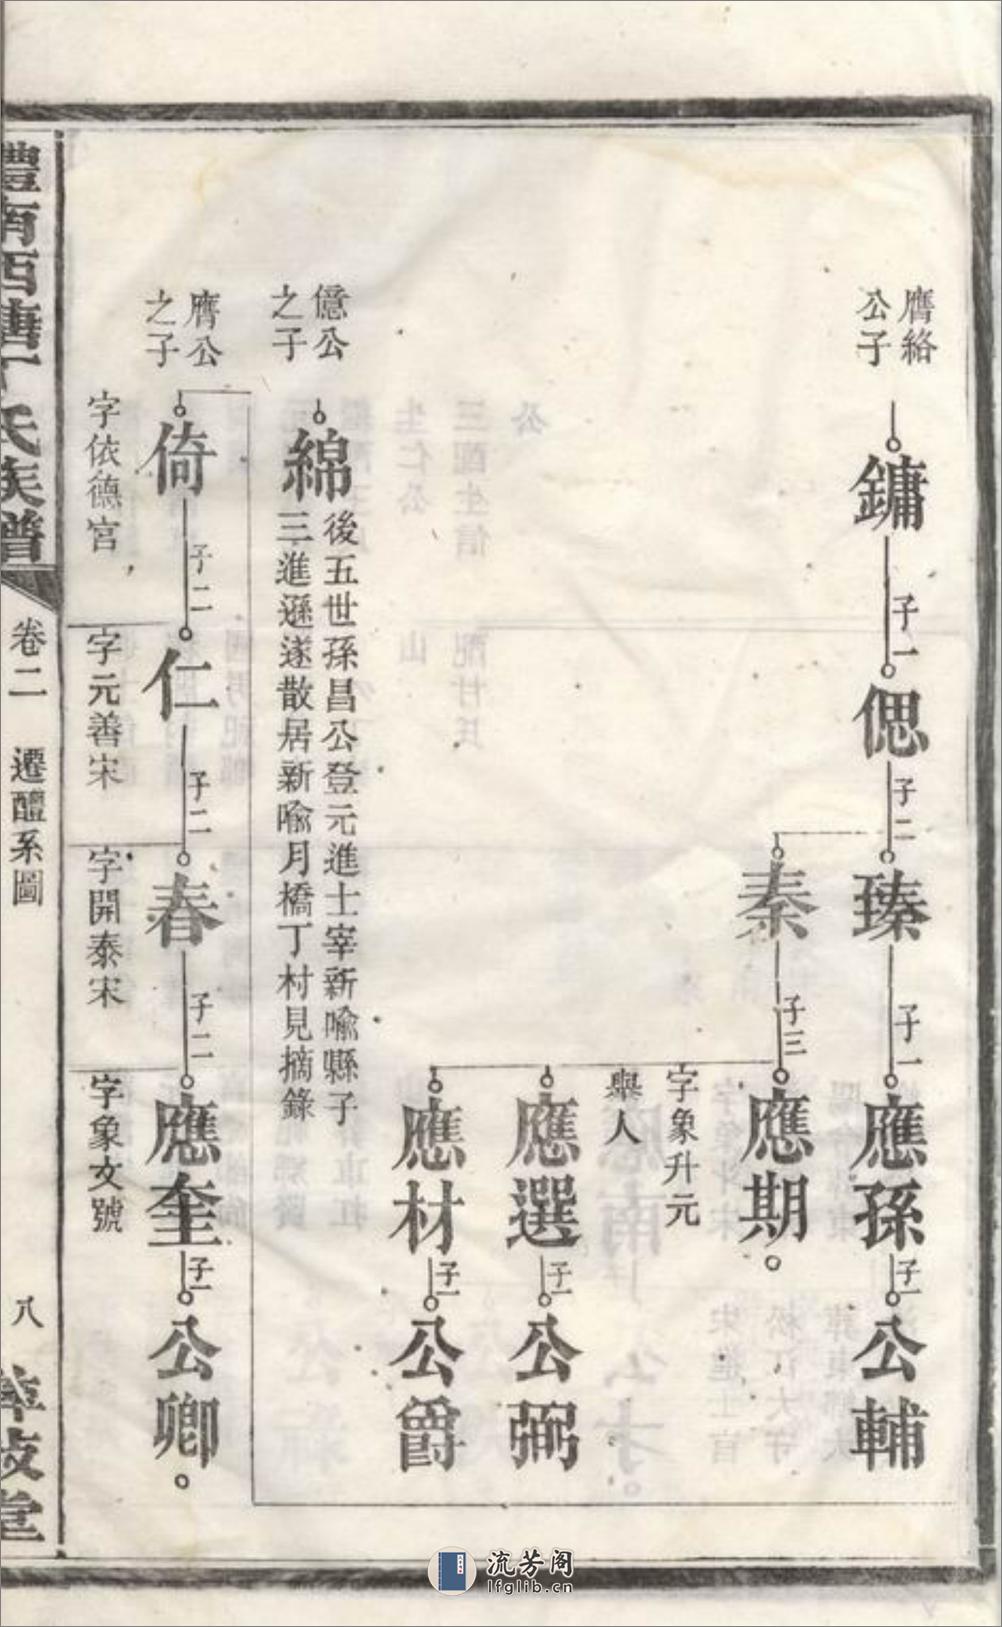 膺絡
公子
鏞
子一
偲
子二
臻
子一
應孫
子一
公輔
秦
子三
應期
字象升元
舉人
應選
子一
公弼
應材
子一
公爵
億公
之子
綿
後五世孫昌公登元進士宰新喻縣子
三進遜遂散居新喻月橋丁村見摘錄
膺公
之子
倚
子二
仁
子二
春
子二
應奎
子一
公卿
字依德宮
字元善宋
字開泰宋
字象文號
澧南西塘丁氏族譜
卷二
遷醴系圖
八
流芳阁
lfglib.cn